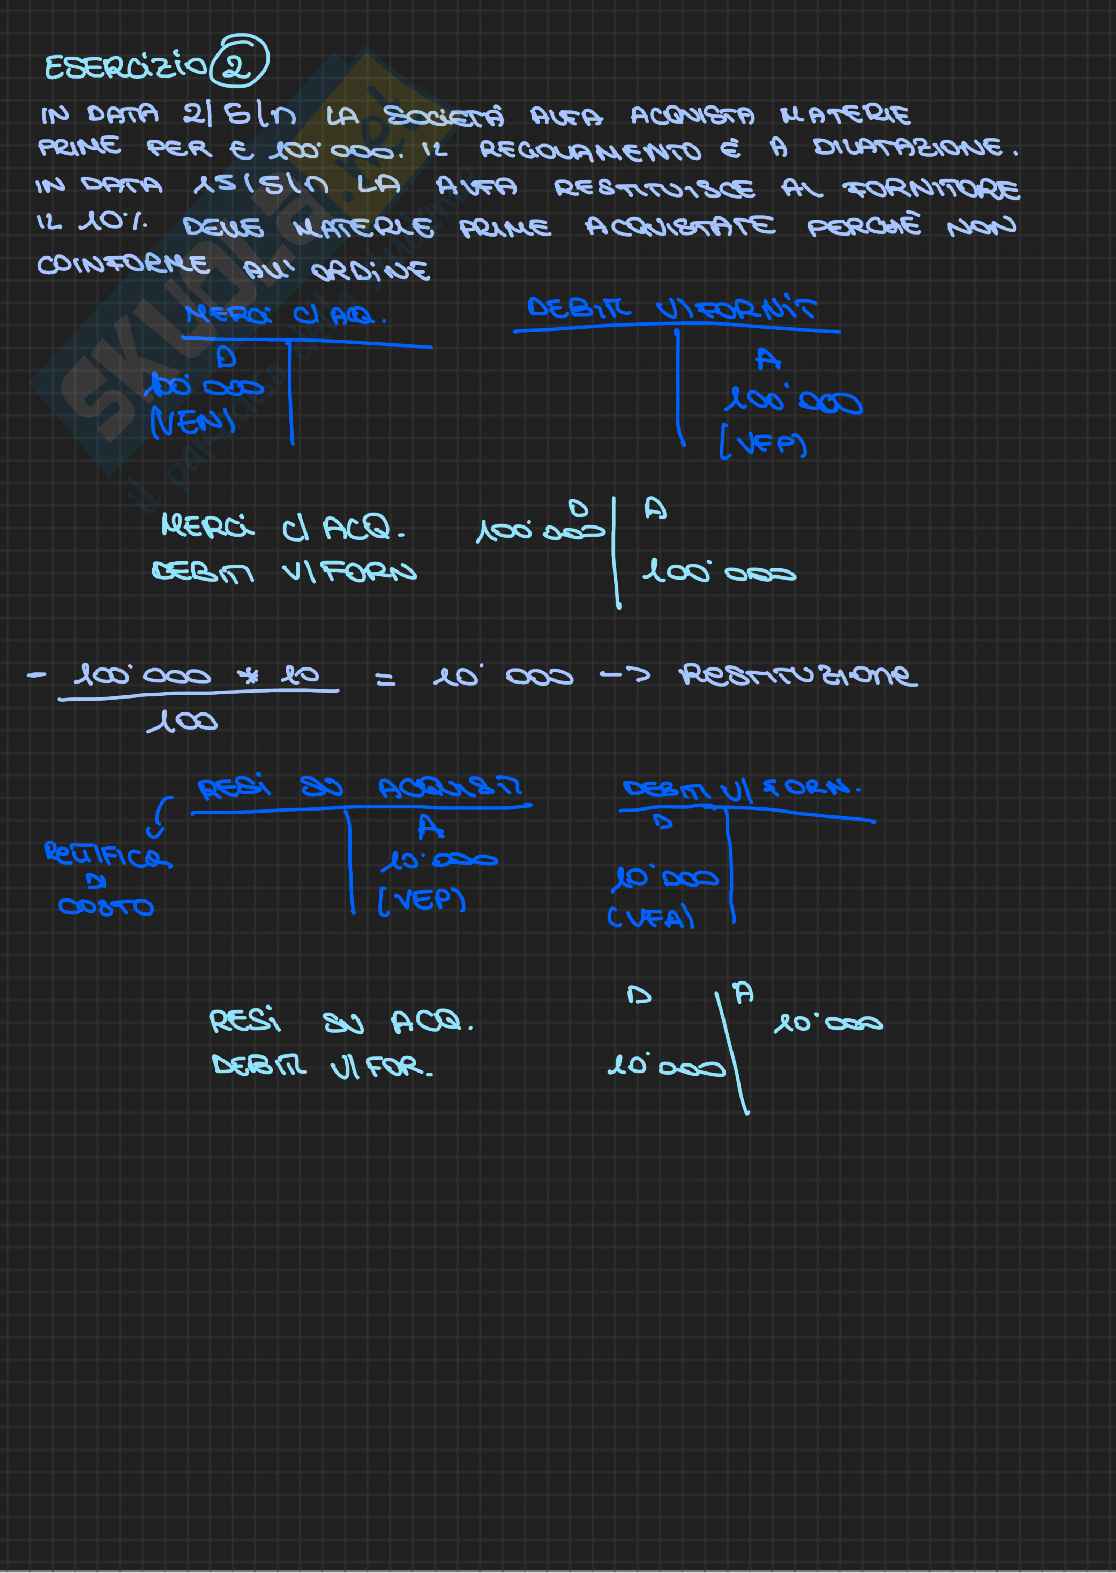 ESERCIZIO 2
IN DATA 2/5/n LA SOCIETÀ ALFA ACQUISTA MATERIE
PRIME PER € 100˙000. IL REGOLAMENTO È A DILATAZIONE.
IN DATA 15/5/n LA ALFA RESTITUISCE AL FORNITORE
IL 10% DELLE MATERIE PRIME ACQUISTATE PERCHÈ NON
COINFORME ALL' ORDINE
MERCI C/ ACQ. DEBITI V/ FORNIT
D A
100˙000 100˙000
(VEN) (VFP)
D A
MERCI C/ ACQ. 100˙000
DEBITI V/ FORN 100˙000
- 100˙000 * 10 = 10˙000 --> RESTITUZIONE
100
RESI SU ACQUISTI DEBITI V/ FORN.
A D
RETTIFICA 10˙000 10˙000
DI (VEP) (VFA)
COSTO
D A
RESI SU ACQ. 10˙000
DEBITI V/ FOR. 10˙000
SKUOLA.net